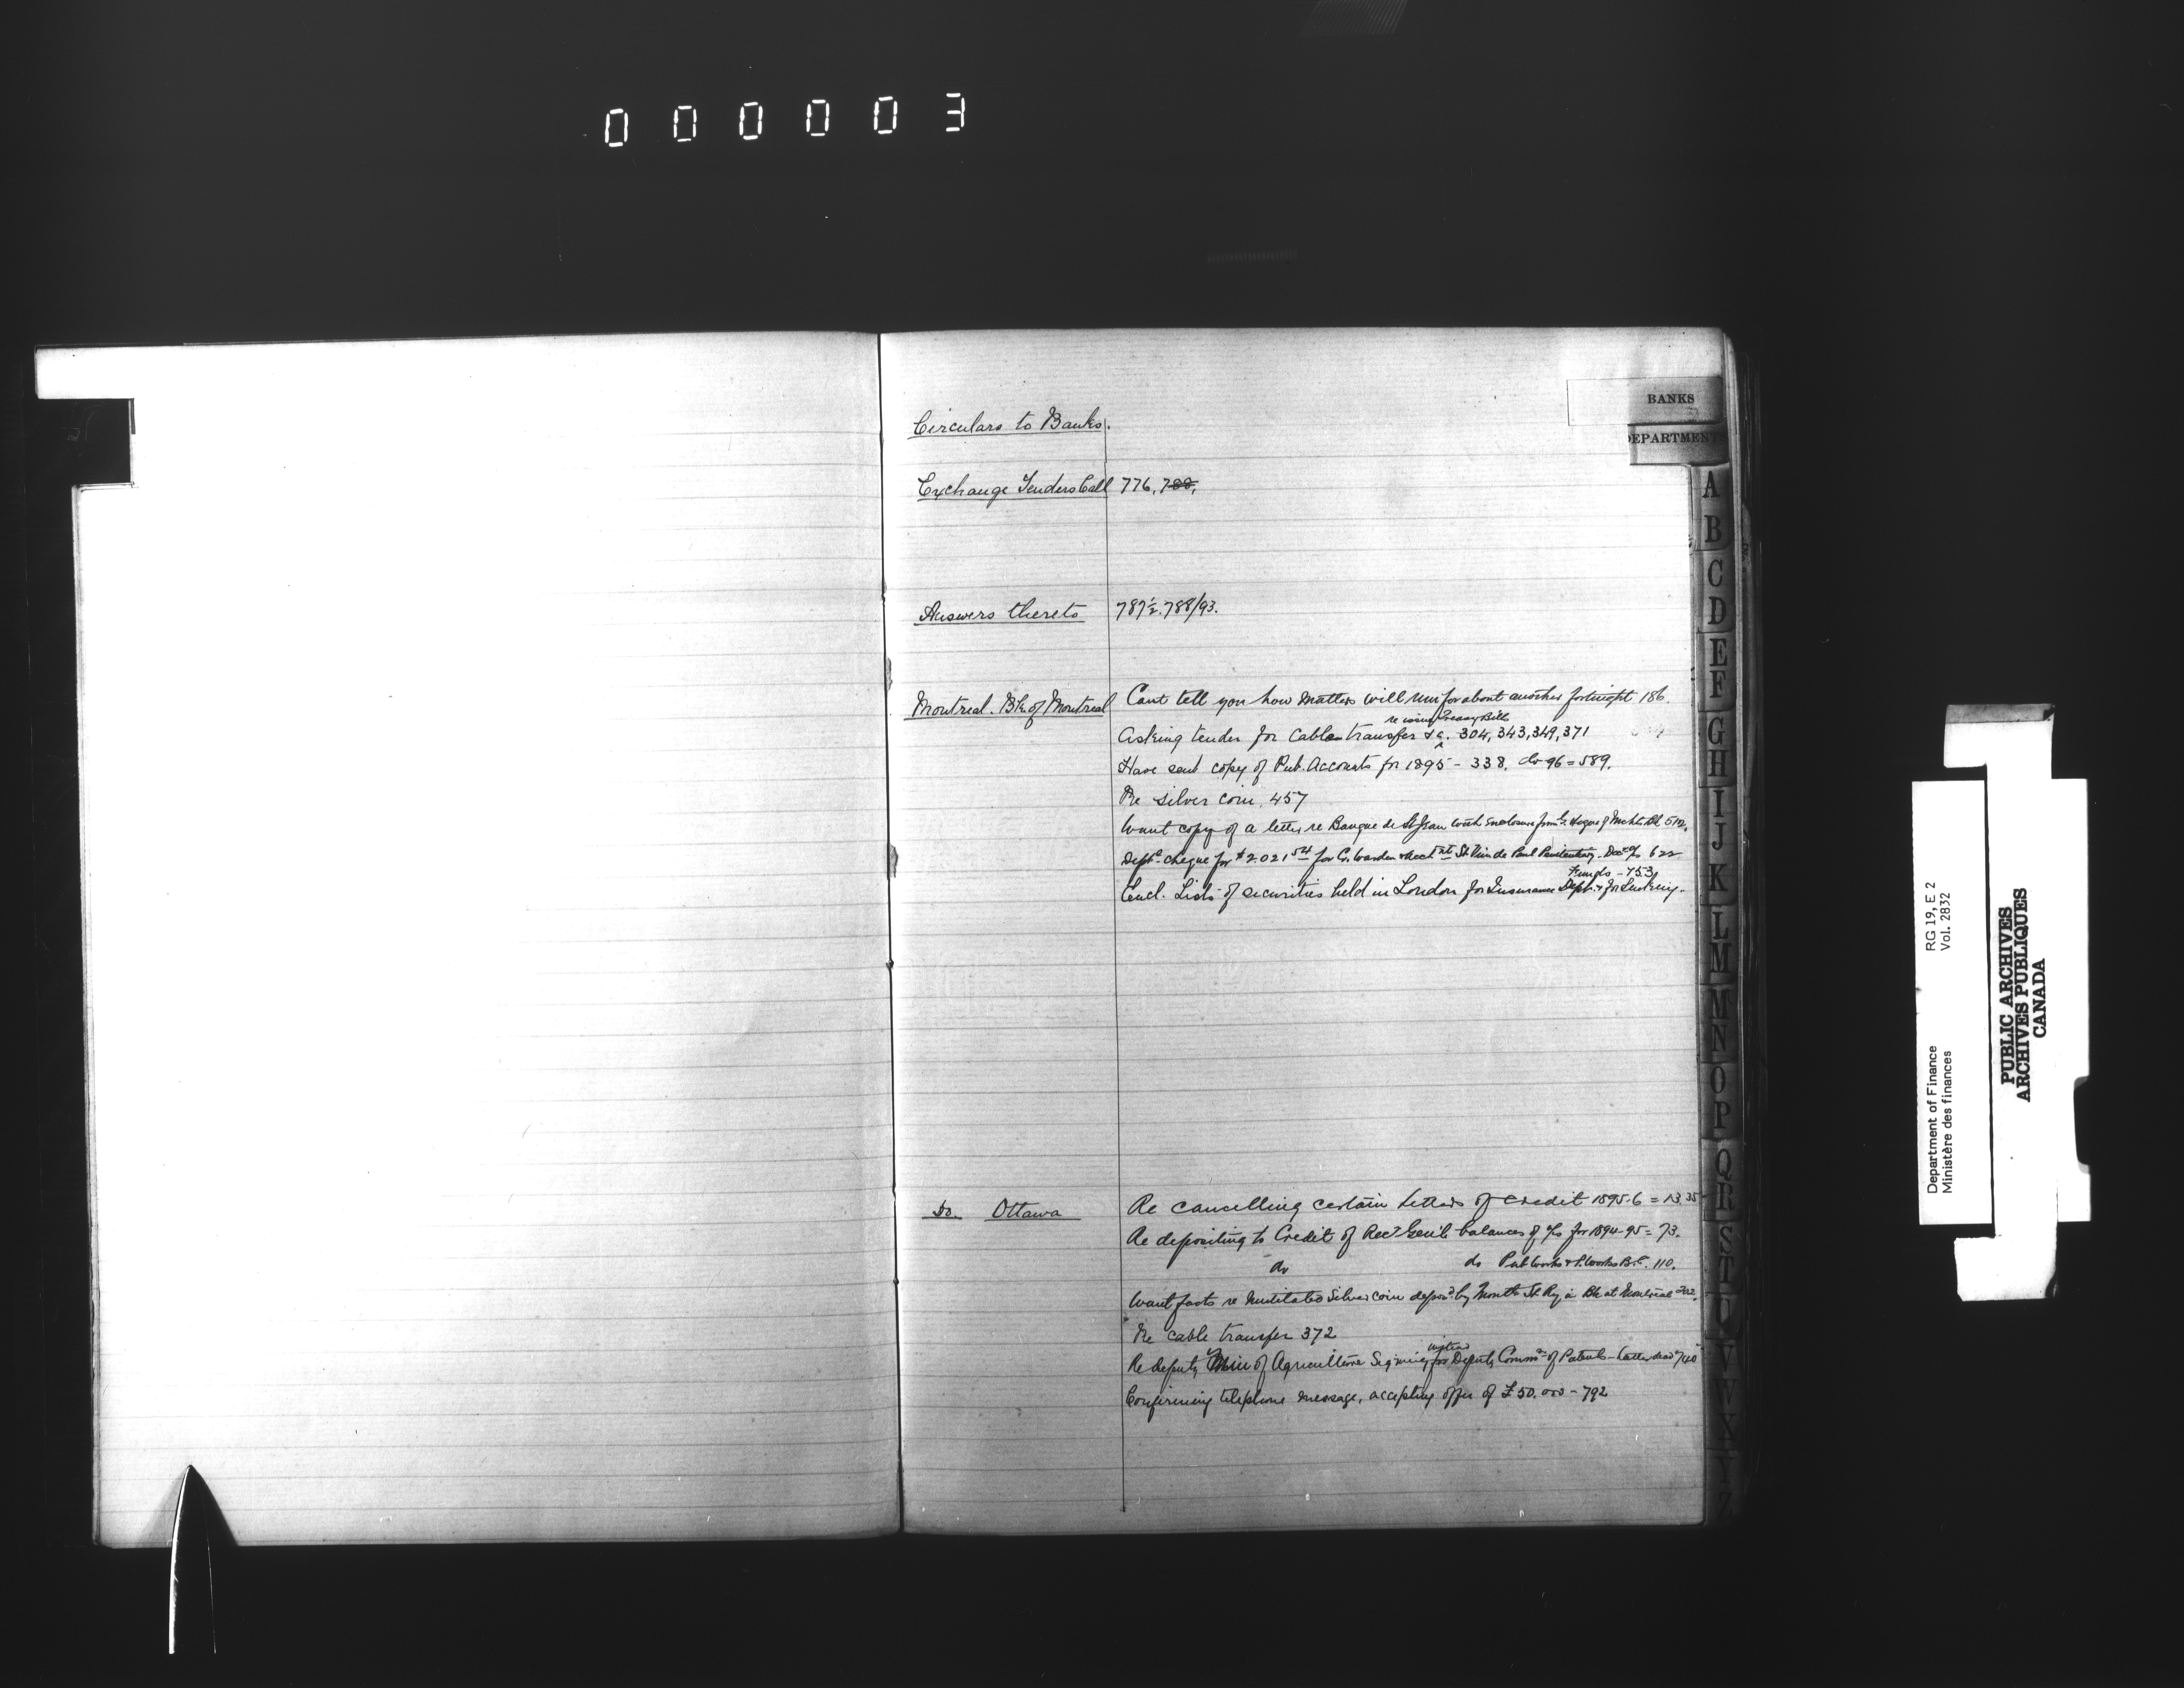 000003
BANKS
DEPARTMENT
Circulars to Banks.
Exchange Tenders Call 776, 788,
Answers thereto 787½. 788/93.
Montreal. Bk. of Montreal Cant tell you how matters will run for about another fortnight 186.
re issue Treasy Bills
Asking tender for Cable transfer &c. 304, 343, 349, 371
Have sent copy of Pub. Accounts for 1895 - 338. do 96 = 589.
Re silver coin, 457
Want copy of a letter re Banque de St Jean with enclosure from G. Hague of Mchts Bk 512.
Dept'l cheque for $2.021 54 for G. Warden & Acct nt St Vin de Paul Penitentiary - 622
Funds - 753
Encl. Lists of securities held in London for Insurance Dept. & for Sinking -
Do. Ottawa Re cancelling certain Letters of Credit 1895-6 = 13, 35
Re depositing to Credit of Rec'r Gen'l balances of a/cs for 1894-95 = 73.
do do Pub Works & P. Works B.C. 110.
Want facts re mutilated silver coin depos'd by Montl St Ry in Bk at Montreal 202.
Re cable transfer 372
Re deputy Min of Agriculture Signing for Deputy Commr of Patents - latter dead 740
Confirming telephone message, accepting offer of £50.000 - 792
A
B
C
D
E
F
G
H
I
J
K
L
M
M
N
O
P
Q
R
S
T
U
V
W
X
Y
Z
Department of Finance RG 19, E 2
Ministère des finances Vol. 2832
PUBLIC ARCHIVES
ARCHIVES PUBLIQUES
CANADA